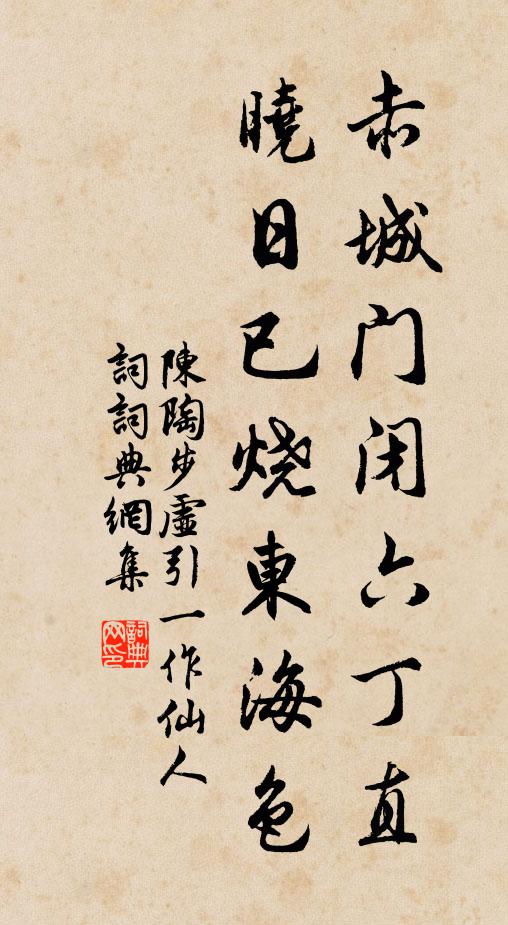 赤城門闭六丁直
曉日已烧東海色
陳陶步虛引一作仙人
詞詞典網集
詞典
网印